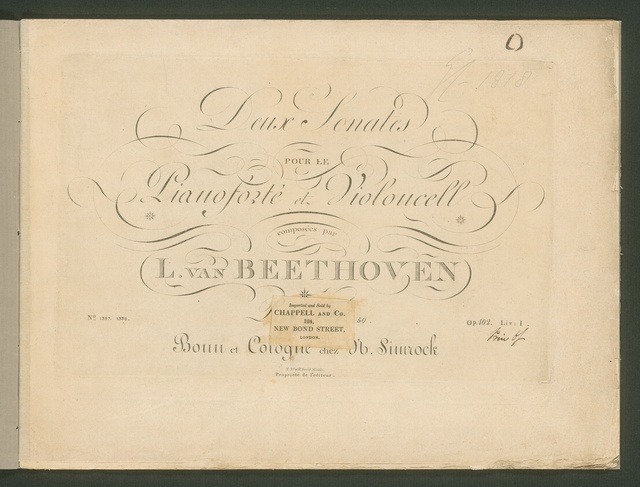 1818
Deux Sonates
POUR LE
Pianoforte et Violoncell
composées par
L. VAN BEETHOVEN
Imported and Sold by
CHAPPELL AND Co.
124,
NEW BOND STREET,
LONDON.
50.
Nº 1337. 1338.
Op. 102. Liv: 1
Bonn et Cologne chez N. Simrock
Propriété de l'editeur.